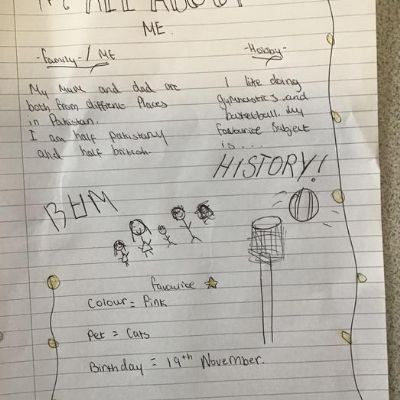 ALL ABOUT
ME.
-Family-/ ME
My mum and dad are
both from diffrent Places
in Pakistan.
I am half pakistany
and half british.
-Hobby-
I like doing
gymnastics and
basketball. My
favourite subject
is . . . .
HISTORY!
favourite
Colour = Pink
Pet = Cats
Birthday = 19th November.